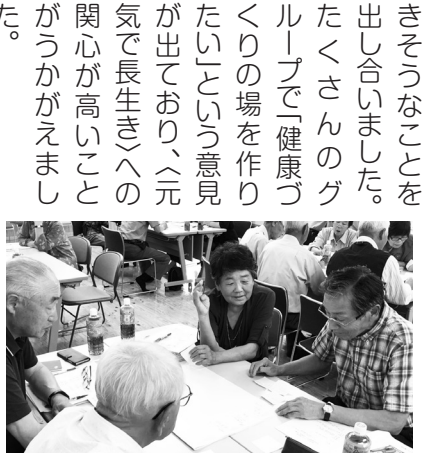 きそうなことを
出し合いました。
たくさんのグ
ループで「健康づ
くりの場を作り
たい」という意見
が出ており、〈元
気で長生き〉への
関心が高いこと
がうかがえまし
た。